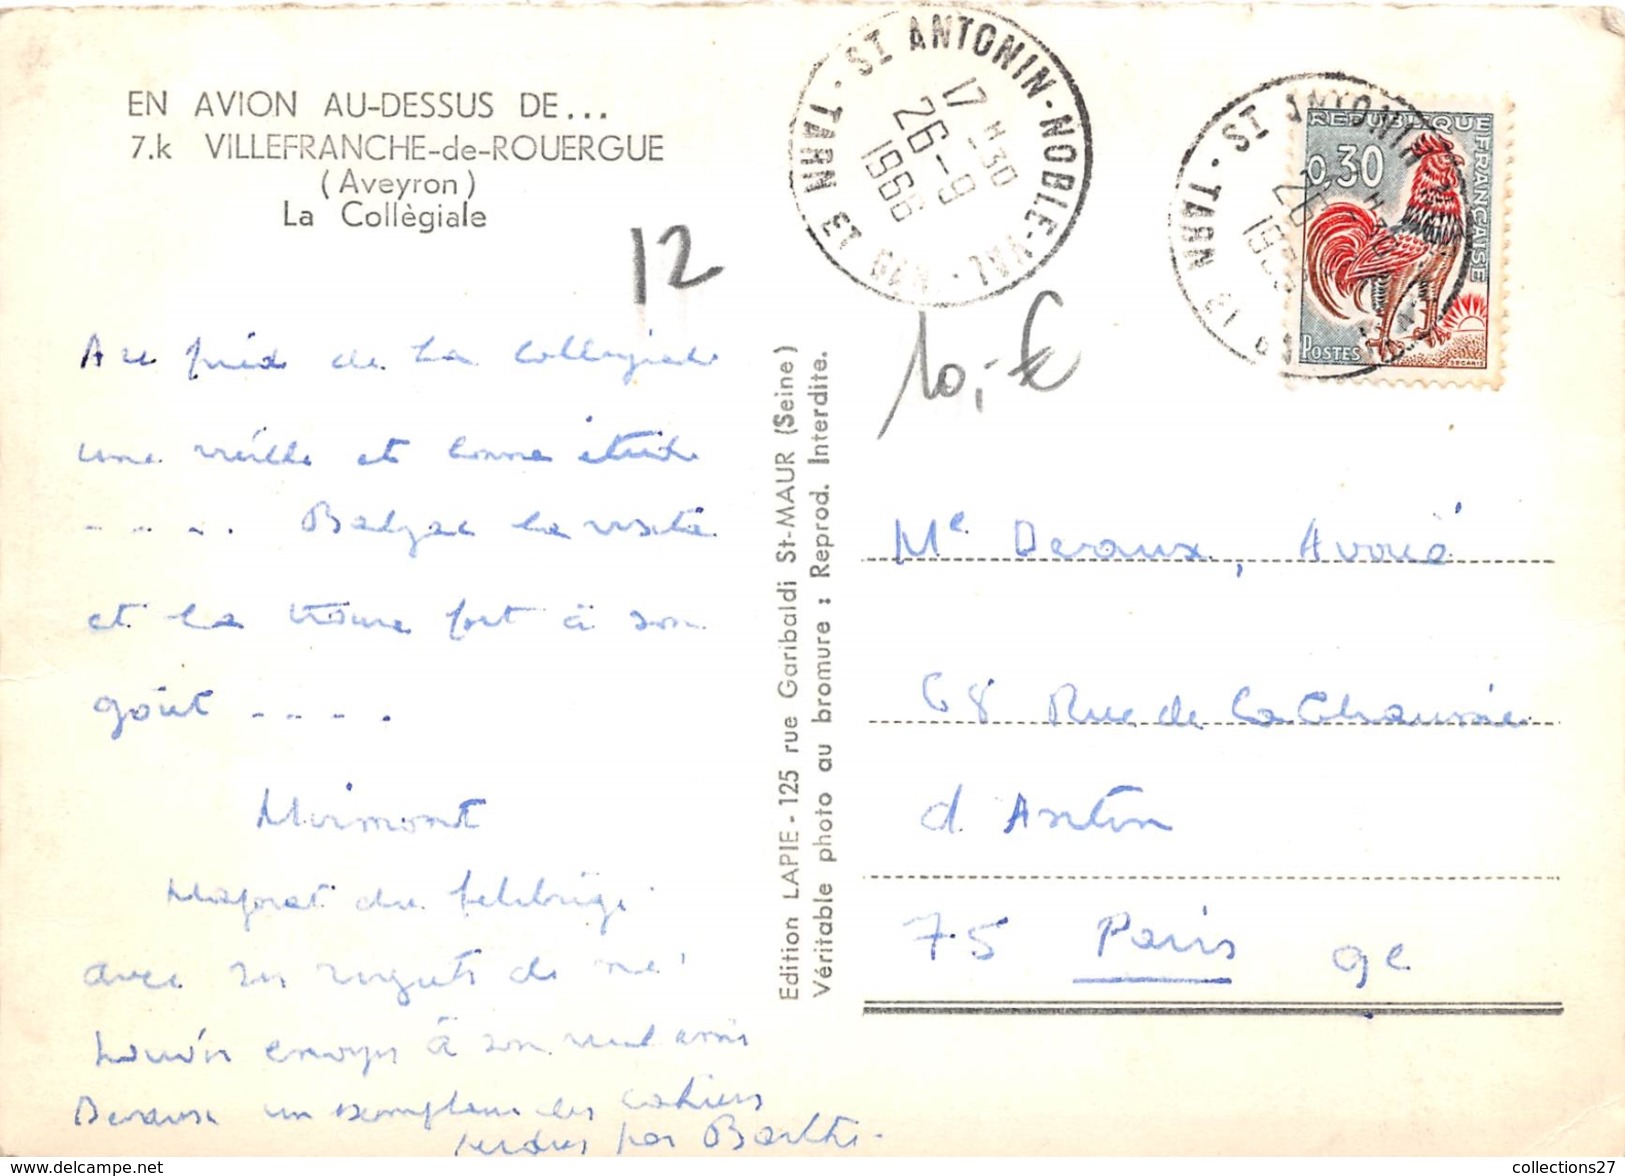 EN AVION AU-DESSUS DE...
7.k VILLEFRANCHE-de-ROUERGUE
(Aveyron)
La Collègiale
12
Au pied de la Collegiale
une vieille et bonne étude
- - - . Balzac la visite
et la trouve fort à son
goût - - - .
Mirmont
Majoral du félibrige
avec ses regrets de ne
envoyer à son vieil ami
Deraux un exemplaire des cahiers
perdus par Barthe.
Edition LAPIE - 125 rue Garibaldi St-MAUR (Seine)
Véritable photo au bromure : Reprod. Interdite.
ST ANTONIN-NOBLE-VAL · TARN ET GAR
17 H 30
26-9
1966
10,- €
ST ANTONIN
TARN
REPUBLIQUE FRANÇAISE
0,30
POSTES
DECARIS
Me Deraux, Avoué
68 Rue de la Chaussée
d'Antin
75 Paris 9e
collections27